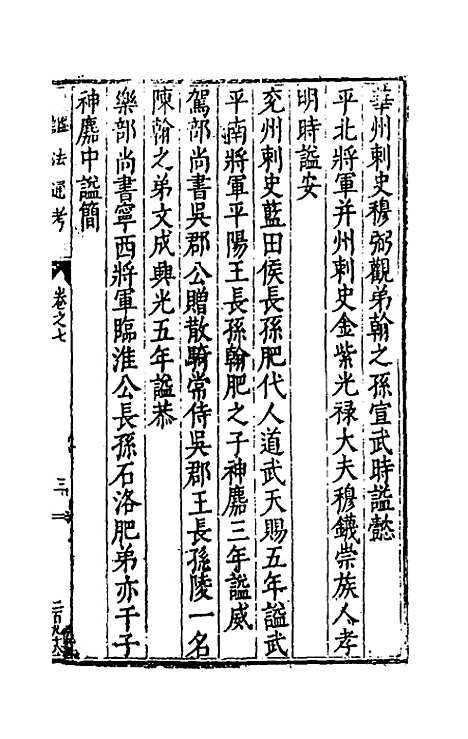 華州刺史穆弼觀弟翰之孫宣武時謚懿
平北將軍并州刺史金紫光祿大夫穆鑖崇族人孝
明時謚安
兖州刺史藍田侯長孫肥代人道武天賜五年謚武
平南將軍平陽王長孫翰肥之子神麚三年謚威
駕部尚書吳郡公贈散騎常侍吳郡王長孫陵一名
陳翰之弟文成興光五年謚恭
樂部尚書寧西將軍臨淮公長孫石洛肥弟亦干子
神麚中謚簡
謚法通考
卷之七